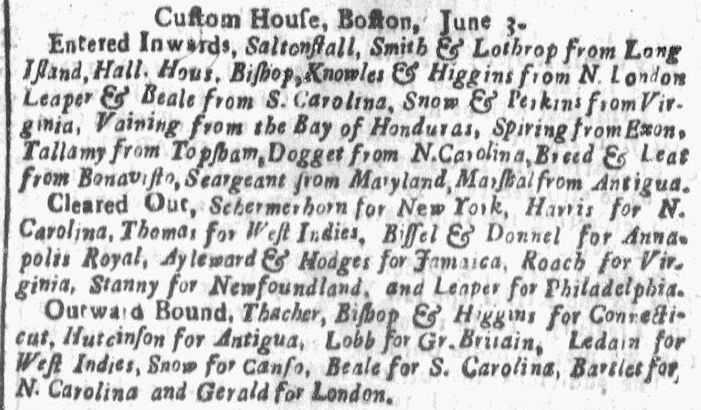 Cuſtom Houſe, Boſton, June 3.
Entered Inwards, Saltonſtall, Smith & Lothrop from Long
Iſland, Hall. Hous, Biſhop, Knowles & Higgins from N. London
Leaper & Beale from S. Carolina, Snow & Perkins from Vir-
ginia, Vaining from the Bay of Honduras, Spiring from Exon,
Tallamy from Topſham, Dogget from N. Carolina, Breed & Leat
from Bonaviſto, Seargeant from Maryland, Marſhal from Antigua.
Cleared Out, Schermerhorn for New York, Harris for N.
Carolina, Thomas for Weſt Indies, Biſſel & Donnel for Anna-
polis Royal, Ayleward & Hodges for Jamaica, Roach for Vir-
ginia, Stanny for Newfoundland, and Leaper for Philadelphia.
Outward Bound, Thacher, Biſhop & Higgins for Connecti-
cut, Hutcinſon for Antigua, Lobb for Gr. Britain, Ledain for
Weſt Indies, Snow for Canſo, Beale for S. Carolina, Bartlet for
N. Carolina and Gerald for London.